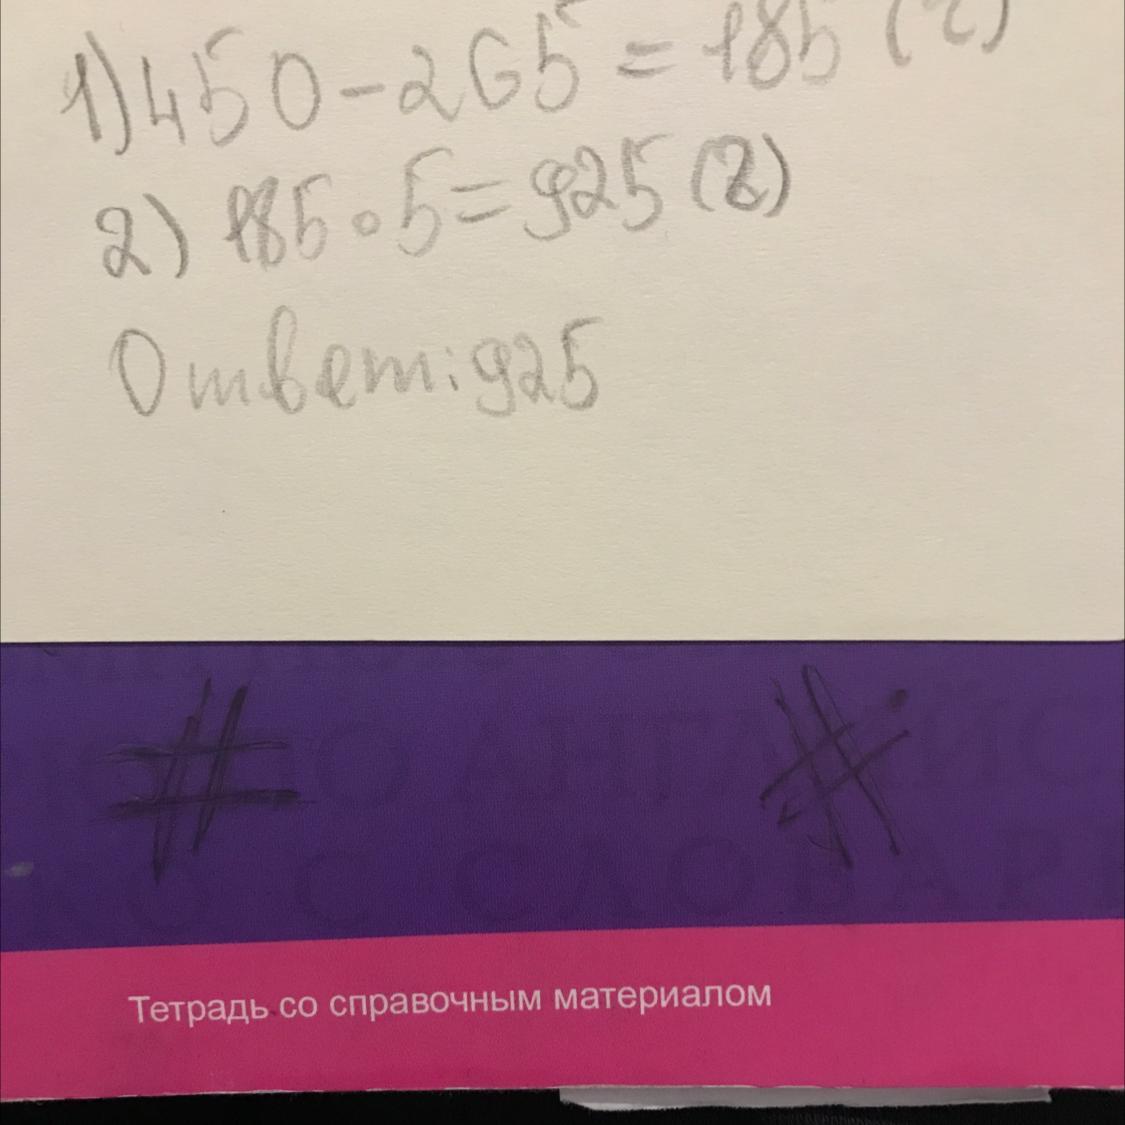 1) 450 - 265 = 185 (г)
2) 185 ∘ 5 = 925 (г)
Ответ: 925
О АНГЛИЙС
С СЛОВАР
Тетрадь со справочным материалом